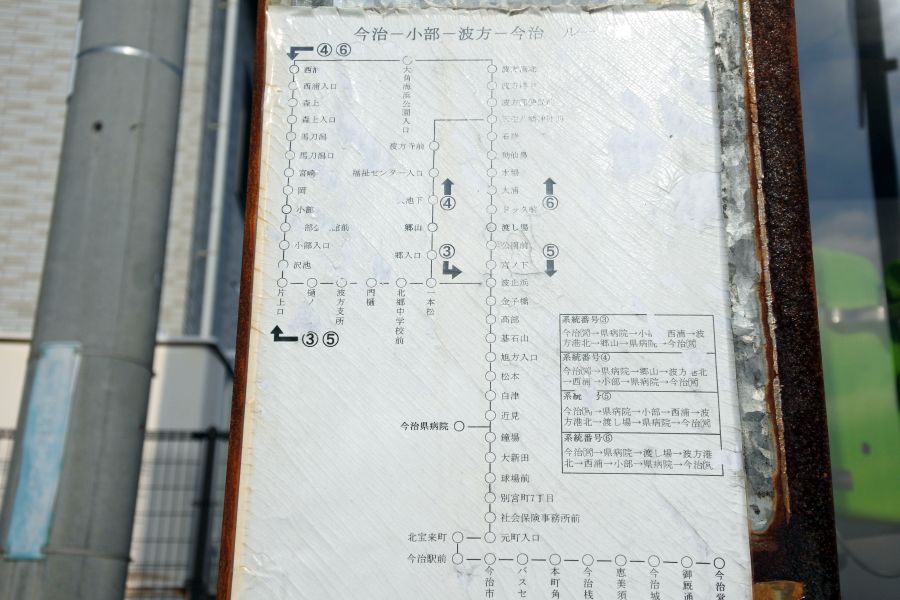 今治－小部－波方－今治 ル
④⑥
西浦入口
森上
森上入口
馬刀潟
馬刀潟口
宮崎
岡
小部
小部入口
沢池
片上口
③⑤
大角海浜公園入口
波方寺前
福祉センター入口
池下
④
郷山
郷入口
③
樋ノ口
波方支所
門樋
北郷中学校前
一本松
石峠
大浦
⑥
渡し場
公園前
⑤
宮ノ下
波止浜
金子橋
高部
基石山
旭方入口
松本
白津
近見
今治県病院
鐘場
大新田
球場前
別宮町7丁目
社会保険事務所前
元町入口
北宝来町
今治駅前
今治市
バスセ
本町角
今治桟
恵美須
今治城
御厩通
今治営
系統番号③
今治㋐→県病院→小 西浦→波
方港北→郷山→県病院→今治
系統番号④
今治 →県病院→郷山→波方港北
→西浦→小部→県病院→今治
系統 号⑤
今治 →県病院→小部→西浦→波
方港北→渡し場→県病院→今治
系統番号⑥
今治 →県病院→渡し場→波方港
北→西浦→小部→県病院→今治